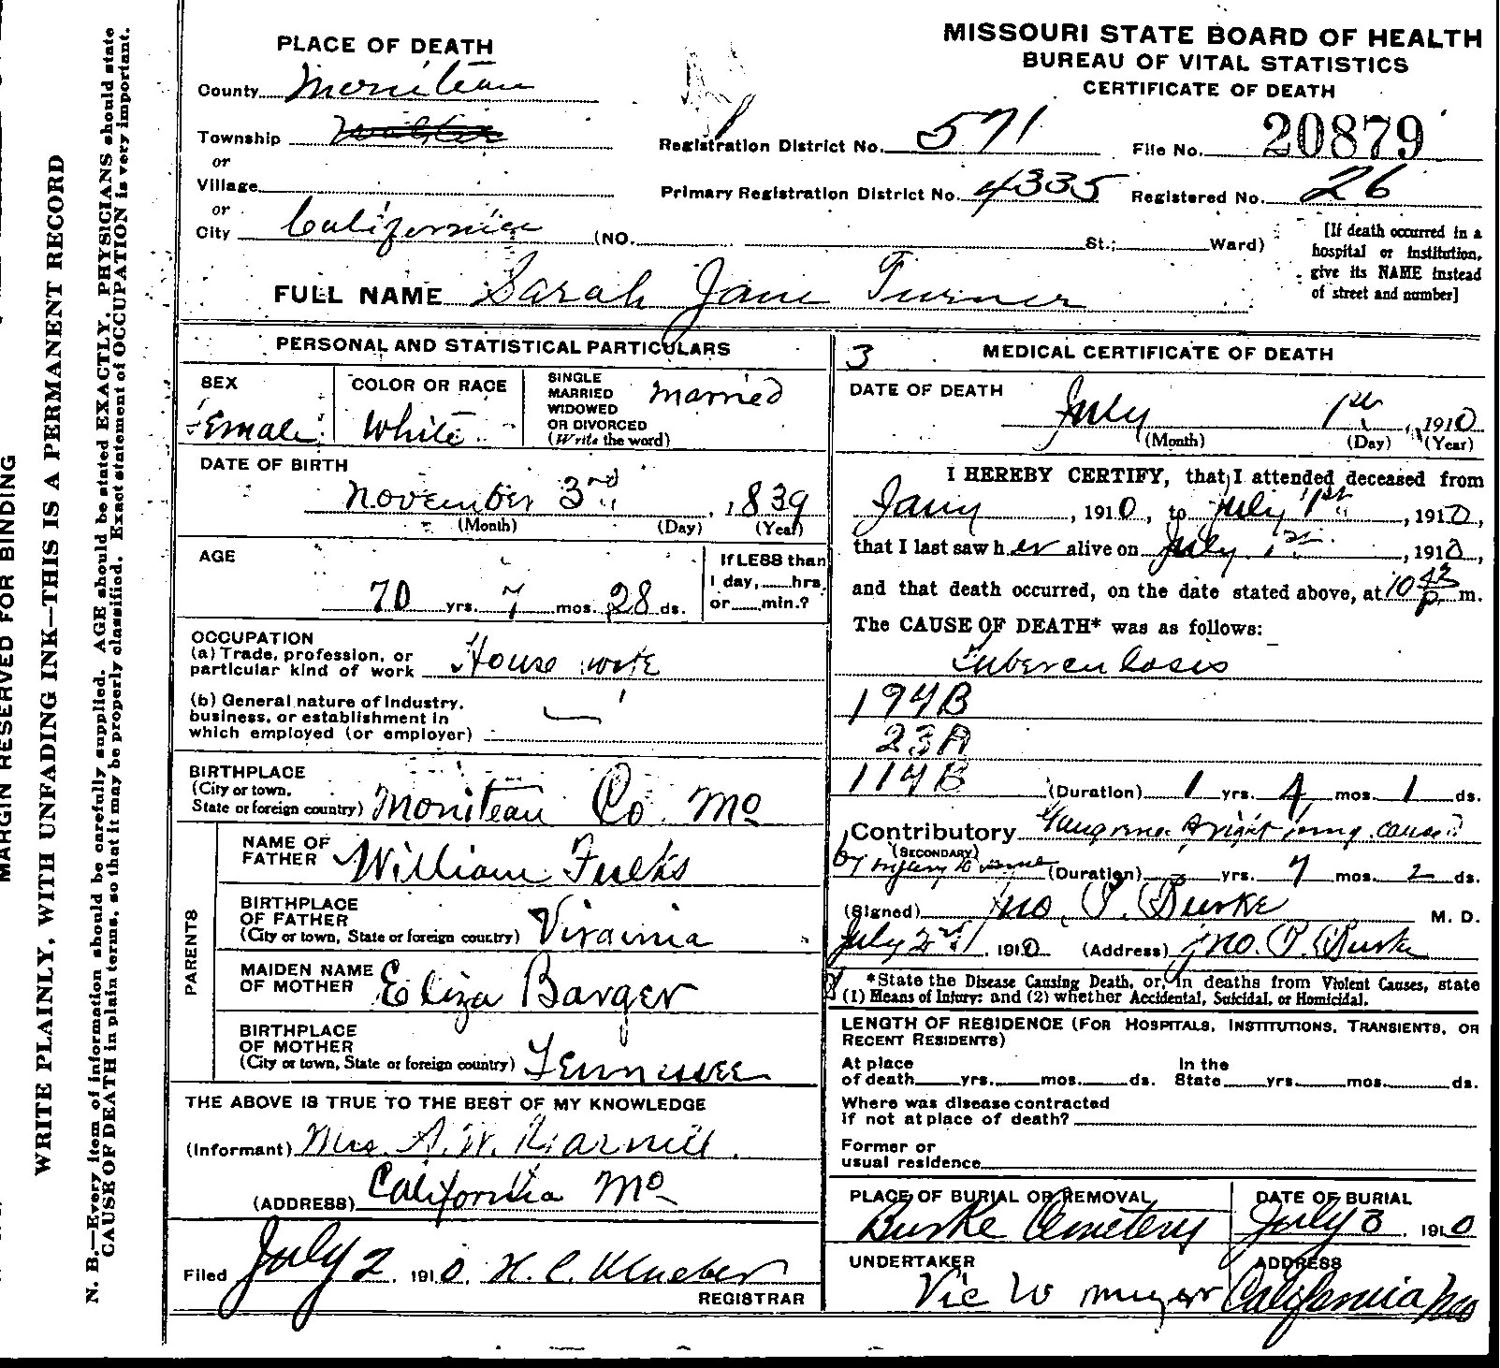 MISSOURI STATE BOARD OF HEALTH
BUREAU OF VITAL STATISTICS
CERTIFICATE OF DEATH
PLACE OF DEATH
County Moniteau
Township
or
Village
or
City California (NO. St.; Ward)
Registration District No. 571
File No. 20879
Primary Registration District No. 4335
Registered No. 26
[If death occurred in a
hospital or institution,
give its NAME instead
of street and number]
FULL NAME Sarah Jane Turner
PERSONAL AND STATISTICAL PARTICULARS
SEX
Female
COLOR OR RACE
White
SINGLE
MARRIED
WIDOWED
OR DIVORCED
(Write the word)
married
DATE OF BIRTH
November 3rd, 1839
(Month) (Day) (Year)
AGE
70 yrs. 7 mos. 28 ds.
If LESS than
1 day, hrs.
or min.?
OCCUPATION
(a) Trade, profession, or
particular kind of work House work
(b) General nature of industry,
business, or establishment in
which employed (or employer)
BIRTHPLACE
(City or town,
State or foreign country) Moniteau Co. Mo
PARENTS
NAME OF
FATHER William Fulks
BIRTHPLACE
OF FATHER
(City or town, State or foreign country) Virginia
MAIDEN NAME
OF MOTHER Eliza Barger
BIRTHPLACE
OF MOTHER
(City or town, State or foreign country) Tennessee
THE ABOVE IS TRUE TO THE BEST OF MY KNOWLEDGE
(Informant) Mrs. A. W.
(ADDRESS) California Mo
Filed July 2, 1910. H. C.
REGISTRAR
3
MEDICAL CERTIFICATE OF DEATH
DATE OF DEATH
July 1st, 1910
(Month) (Day) (Year)
I HEREBY CERTIFY, that I attended deceased from
Jany, 1910, to July 1st, 1910,
that I last saw her alive on July 1st, 1910,
and that death occurred, on the date stated above, at 10 43 P. m.
The CAUSE OF DEATH* was as follows:
Tuberculosis
194B
23A
114B (Duration) 1 yrs. 4 mos. 1 ds.
Contributory Gangrene right lung caused
(SECONDARY)
by injury to (Duration) yrs. 7 mos. 2 ds.
(Signed) Jno. P. Burke M. D.
July 2nd, 1910 (Address) Jno. P. Burke
*State the Disease Causing Death, or, in deaths from Violent Causes, state
(1) Means of Injury; and (2) whether Accidental, Suicidal, or Homicidal.
LENGTH OF RESIDENCE (FOR HOSPITALS, INSTITUTIONS, TRANSIENTS, OR
RECENT RESIDENTS)
At place
of death yrs. mos. ds.
In the
State yrs. mos. ds.
Where was disease contracted
if not at place of death?
Former or
usual residence
PLACE OF BURIAL OR REMOVAL
Burke Cemetery
DATE OF BURIAL
July 3, 1910
UNDERTAKER
Vic W
ADDRESS
California Mo
MARGIN RESERVED FOR BINDING
WRITE PLAINLY, WITH UNFADING INK—THIS IS A PERMANENT RECORD
N. B.—Every item of information should be carefully supplied. AGE should be stated EXACTLY. PHYSICIANS should state
CAUSE OF DEATH in plain terms, so that it may be properly classified. Exact statement of OCCUPATION is very important.